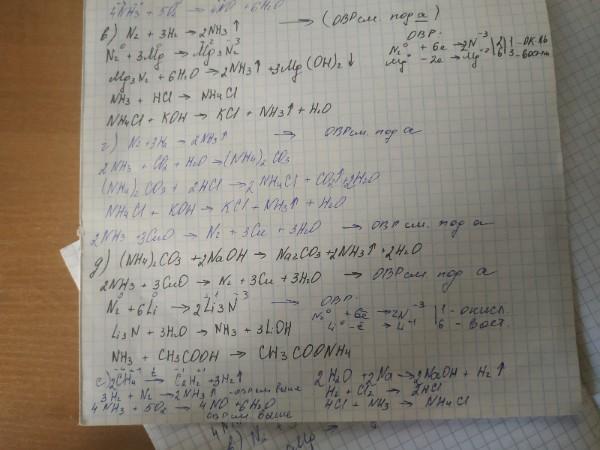 4NH₃ + 5O₂ → 4NO + 6H₂O
в) N₂ + 3H₂ → 2NH₃↑ → (ОВР см. под а)
N₂⁰ + 3Mg⁰ → Mg₃⁺²N₂⁻³
ОВР:
N₂⁰ + 6e → 2N⁻³ | 2 | 1 - ок-ль
Mg⁰ - 2e → Mg⁺² | 6 | 3 - восст.
Mg₃N₂ + 6H₂O → 2NH₃↑ + 3Mg(OH)₂↓
NH₃ + HCl → NH₄Cl
NH₄Cl + KOH → KCl + NH₃↑ + H₂O
г) N₂ + 3H₂ → 2NH₃↑ → ОВР см. под а
2NH₃ + CO₂ + H₂O → (NH₄)₂CO₃
(NH₄)₂CO₃ + 2HCl → 2NH₄Cl + CO₂↑ + H₂O
NH₄Cl + KOH → KCl + NH₃↑ + H₂O
2NH₃ + 3CuO → N₂ + 3Cu + 3H₂O → ОВР см. под а
д) (NH₄)₂CO₃ + 2NaOH → Na₂CO₃ + 2NH₃↑ + 2H₂O
2NH₃ + 3CuO → N₂ + 3Cu + 3H₂O → ОВР см. под а
N₂⁰ + 6Li⁰ → 2Li₃⁺¹N⁻³ → ОВР:
N₂⁰ + 6e → 2N⁻³ | 1 - окисл.
Li⁰ - e → Li⁺¹ | 6 - восст.
Li₃N + 3H₂O → NH₃ + 3LiOH
NH₃ + CH₃COOH → CH₃COONH₄
е) 2CH₄ →t C₂H₂ + 3H₂↑
3H₂ + N₂ → 2NH₃↑ - ОВР см. выше
4NH₃ + 5O₂ → 4NO + 6H₂O
ОВР см. выше
2H₂O + 2Na → 2NaOH + H₂↑
H₂ + Cl₂ → 2HCl
HCl + NH₃ → NH₄Cl
в) N₂
Mg